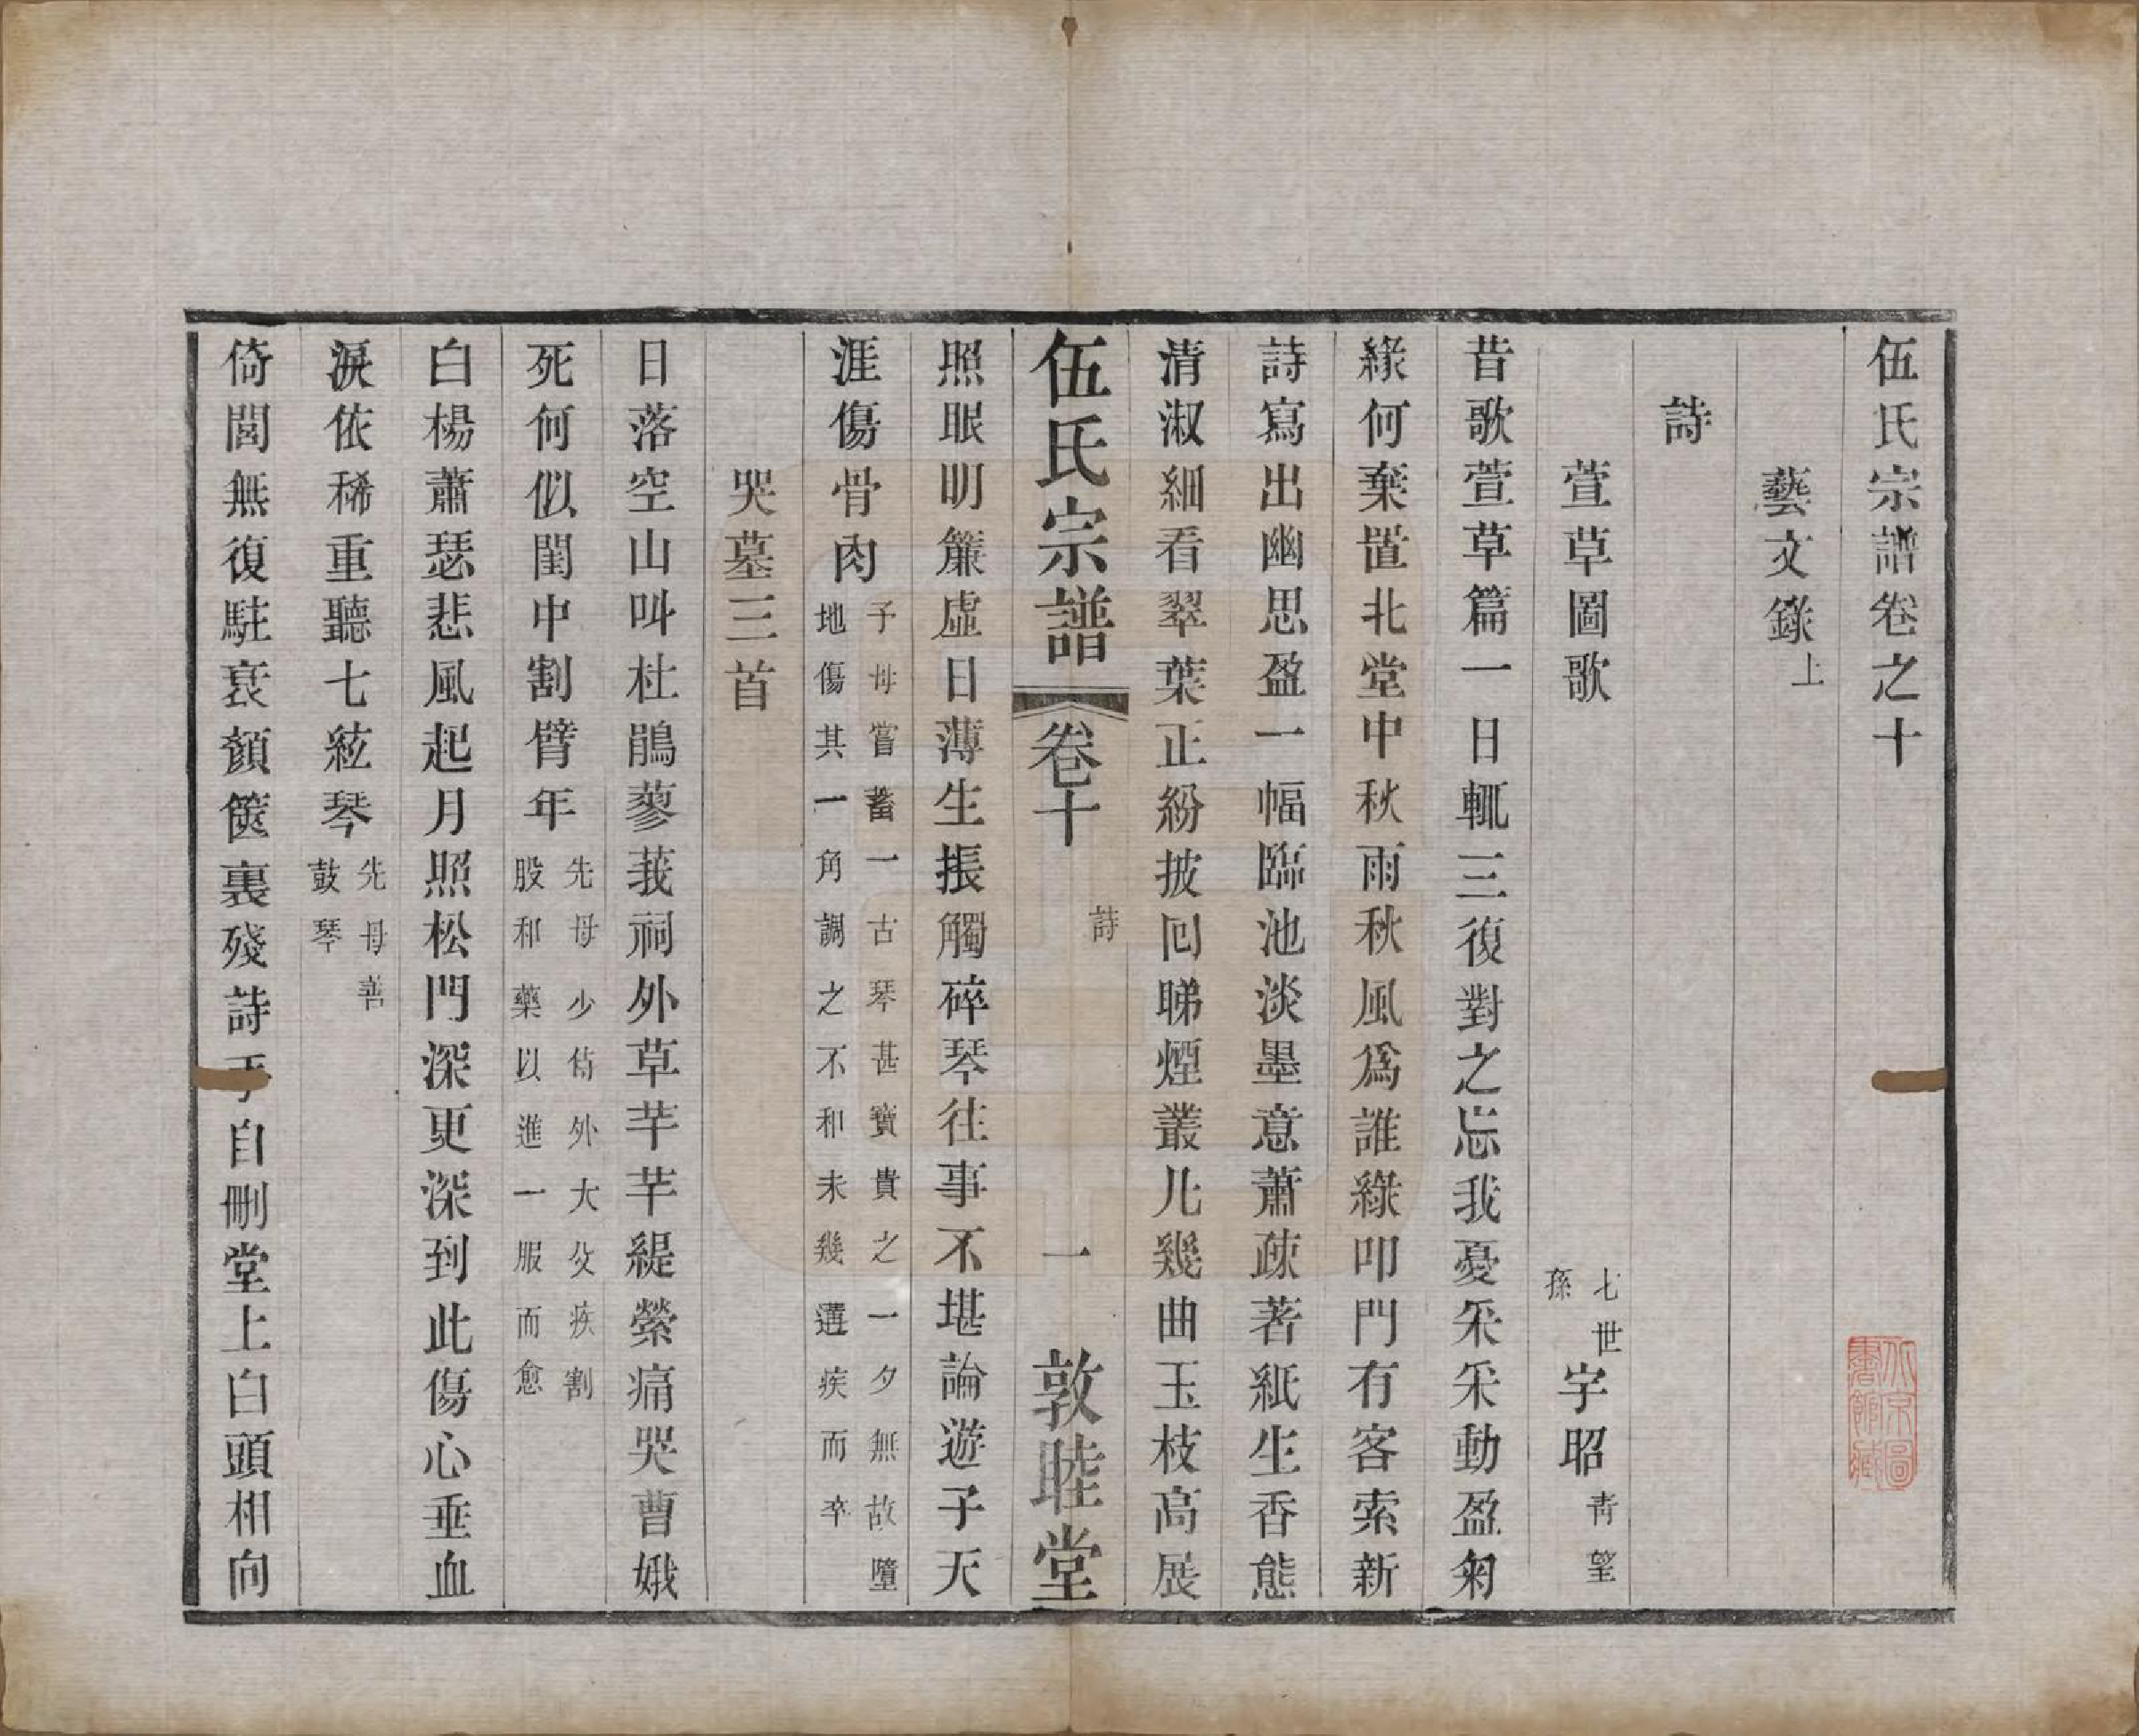 伍氏宗譜卷之十
藝文錄上
詩
萱草圖歌 七世孫宇昭青望
昔歌萱草篇一日輒三復對之忘我憂采采動盈匊
緣何棄置北堂中秋雨秋風爲誰綠叩門有客索新
詩寫出幽思盈一幅臨池淡墨意蕭疎著紙生香態
清淑細看翠葉正紛披回睇煙叢兒幾曲玉枝高展
伍氏宗譜 卷十 詩 一 敦睦堂
照眼明簾虛日薄生振觸碎琴往事不堪論遊子天
涯傷骨肉子母嘗蓄一古琴甚寶貴之一夕無故墮地傷其一角調之不和未幾遘疾而卒
哭墓三首
日落空山叫杜鵑蓼莪祠外草芊芊緹縈痛哭曹娥
死何似閨中割臂年先母少侍外大父疾割股和藥以進一服而愈
白楊蕭瑟悲風起月照松門深更深到此傷心垂血
淚依稀重聽七絃琴先母善鼓琴
倚閭無復駐衰顏篋裏殘詩手自刪堂上白頭相向